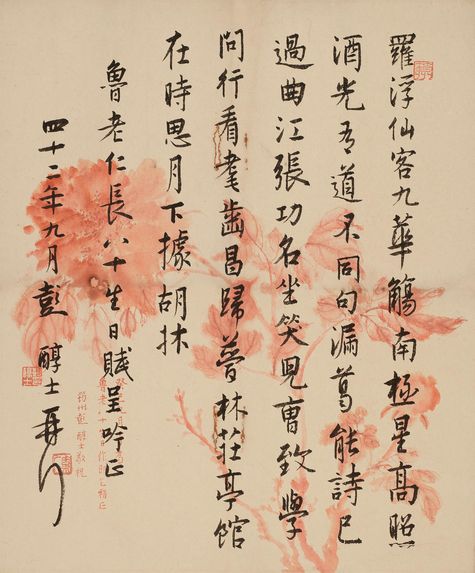 羅浮仙客九華觴南極星高照
酒光吾道不同句漏葛能詩已
過曲江張功名坐笑兒曹致學
問行看耄齒昌歸夢林莊亭館
在時思月下據胡牀
魯老仁長八十生日賦呈吟正
四十二年九月彭醇士
魯老八十
筠州彭醇士敬祝